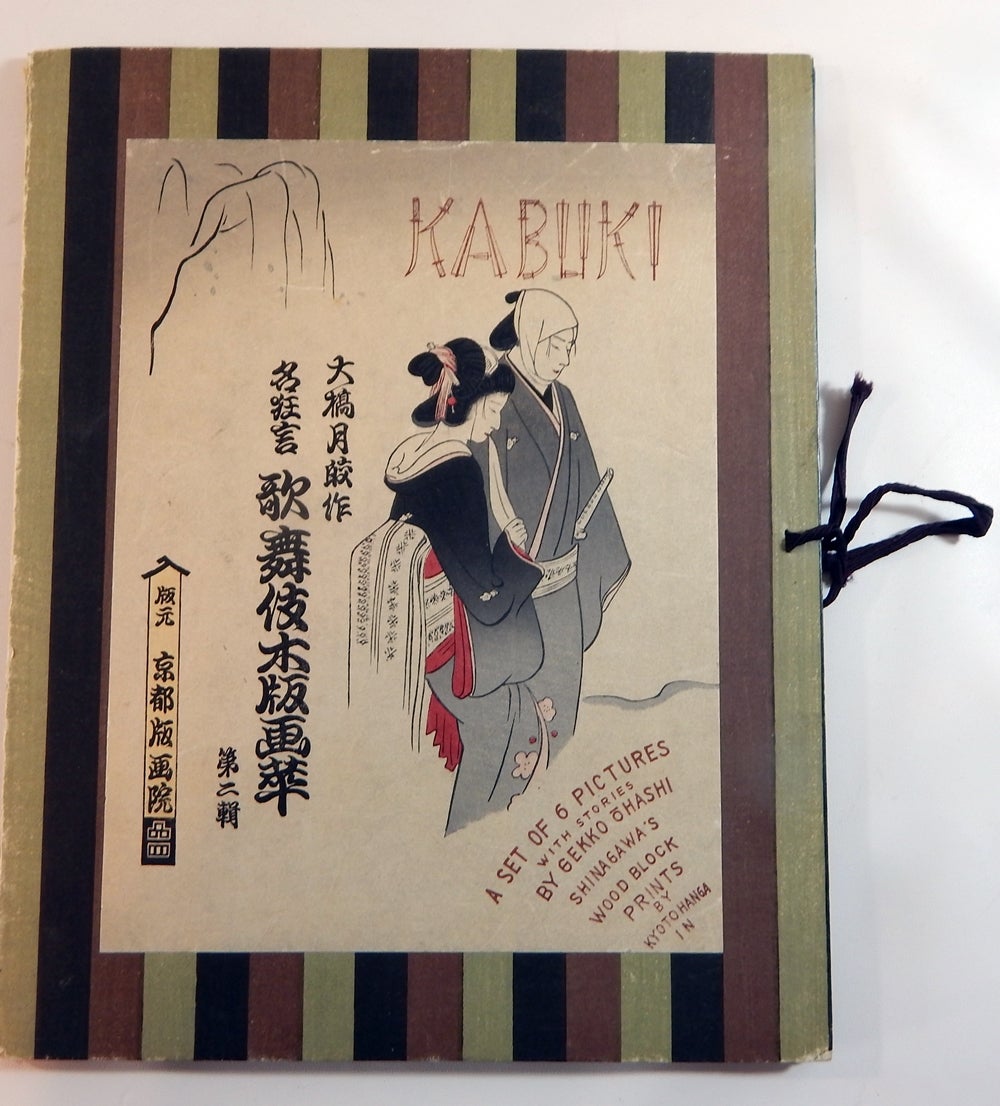 KABUKI
大橋月皎作
名狂言 歌舞伎木版画萃
第二輯
版元 京都版画院
品川
A SET OF 6 PICTURES
WITH STORIES
BY GEKKO ŌHASHI
SHINAGAWA'S
WOOD BLOCK
PRINTS
BY
KYOTO HANGA
IN